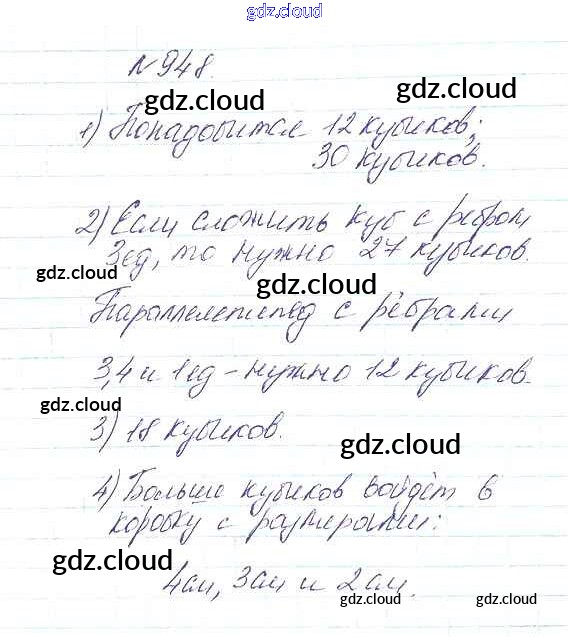 gdz.cloud
№ 948.
gdz.cloud gdz.cloud
1) Понадобится 12 кубиков;
30 кубиков.
2) Если сложить куб с ребром
3ед, то нужно 27 кубиков.
gdz.cloud gdz.cloud
Параллелепипед с рёбрами
3,4 и 1ед - нужно 12 кубиков.
gdz.cloud
3) 18 кубиков.
gdz.cloud
4) Больше кубиков войдёт в
коробку с размерами:
gdz.cloud
4см, 3см и 2см.
gdz.cloud gdz.cloud